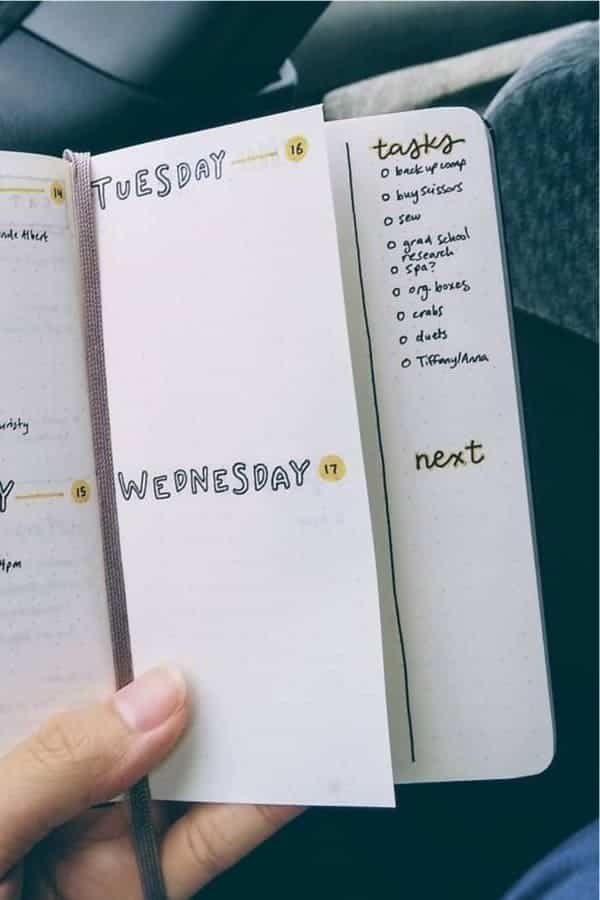 14
Albert
15
4pm
TUESDAY 16
WEDNESDAY 17
tasks
back up comp
buy scissors
sew
grad school
research
spa?
org. boxes
crabs
duets
Tiffany/Anna
next